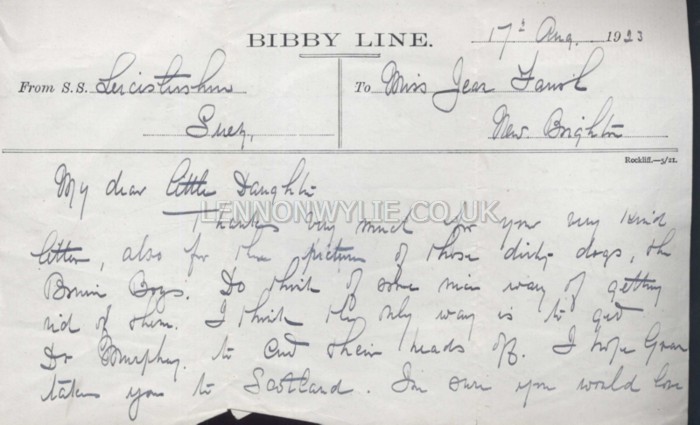 BIBBY LINE.
17th Aug. 1923
From S.S. Leicestershire To Miss Jean
Suez, New Brighton
Rockliff.—5/21.
My dear little Daughter
LENNONWYLIE.CO.UK
Thanks very much for your very kind
letter, also for the pictures of those dirty dogs, the
Boys. Do think of some nice way of getting
rid of them. I think the only way is to get
Dr Murphy. to cut their heads off. I hope
takes you to Scotland. I'm sure you would love